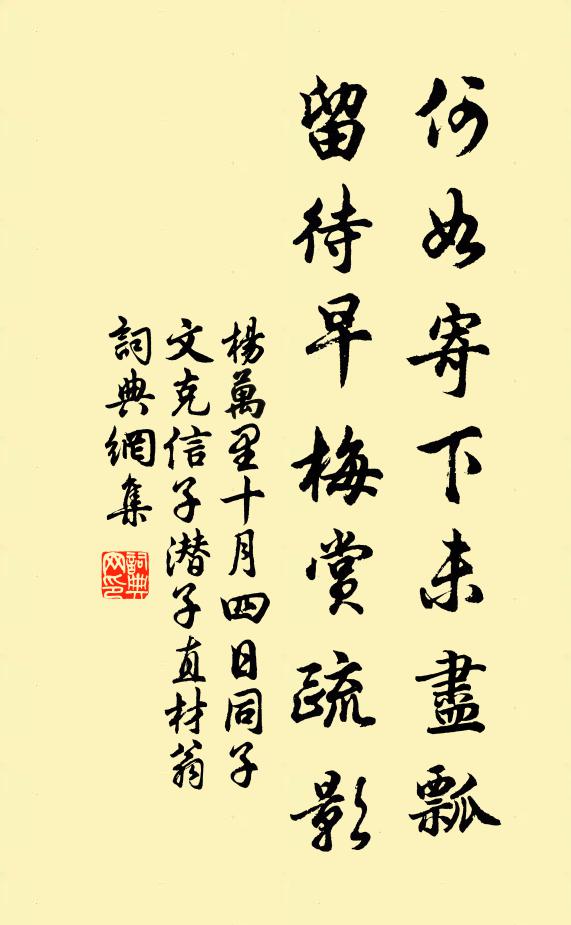 何如寄下未盡瓢
留待早梅賞疏影
楊萬里十月四日同子
文克信子潛子直材翁
詞典網集
詞典
网印